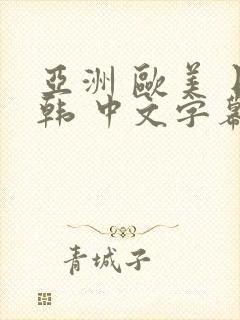 亞洲 歐美
韩 中文字幕
青城子